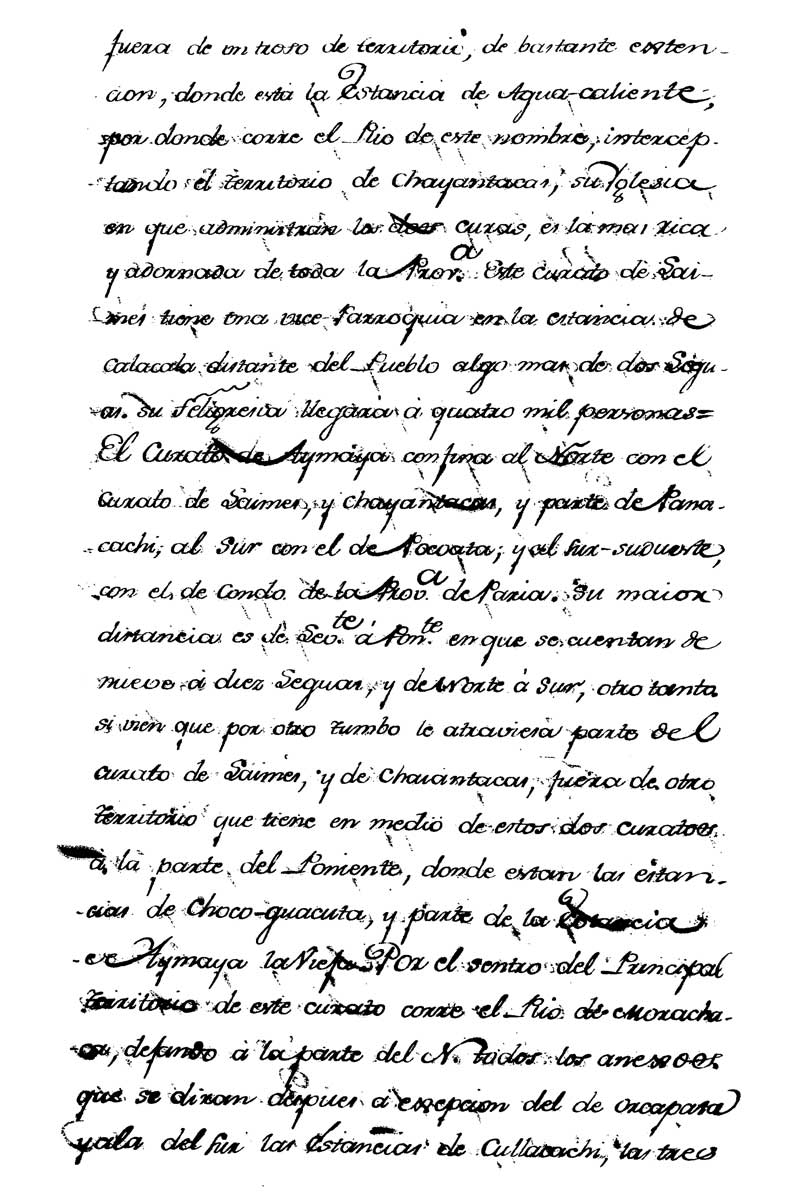 fuera de un troso de territorio, de bastante exten-
cion, donde está la Estancia de Agua-caliente,
por donde corre el Rio de este nombre, intercep-
tando el territorio de Chayantacas, su Yglesia
en que administran los dos curas, es la mas rica
y adornada de toda la Prov.a Este curato de Lai-
mes tiene una vice-Parroquia en la estancia de
Calacala distante del Pueblo algo mas de dos Legu-
as. su feligresia llegará á quatro mil personas=
El Curato de Aymaya confina al Norte con el
curato de Laimes, y Chayantacas, y parte de Pana-
cachi; al Sur con el de Pocoata; y al sur-sudueste,
con el de Condo de la Prov.a de Paria. Su maior
distancia es de Lev.te á Pon.te en que se cuentan de
nueve á diez Leguas, y de Norte á Sur, otro tanto
si vien que por otro rumbo le atraviesa parte del
curato de Laimes, y de Chaiantacas, fuera de otro
territorio que tiene en medio de estos dos curatos
á la parte del Poniente, donde estan las estan-
cias de Choco-guacuta, y parte de la Estancia
de Aymaya la Vieja Por el sentro del Principal
territorio de este curato corre el Rio de Moracha-
ca, dejando á la parte del N. todos los anexos
que se diran despues á exepcion del de Orcapara
y a la del sur las Estancias de Cullacachi, las tres